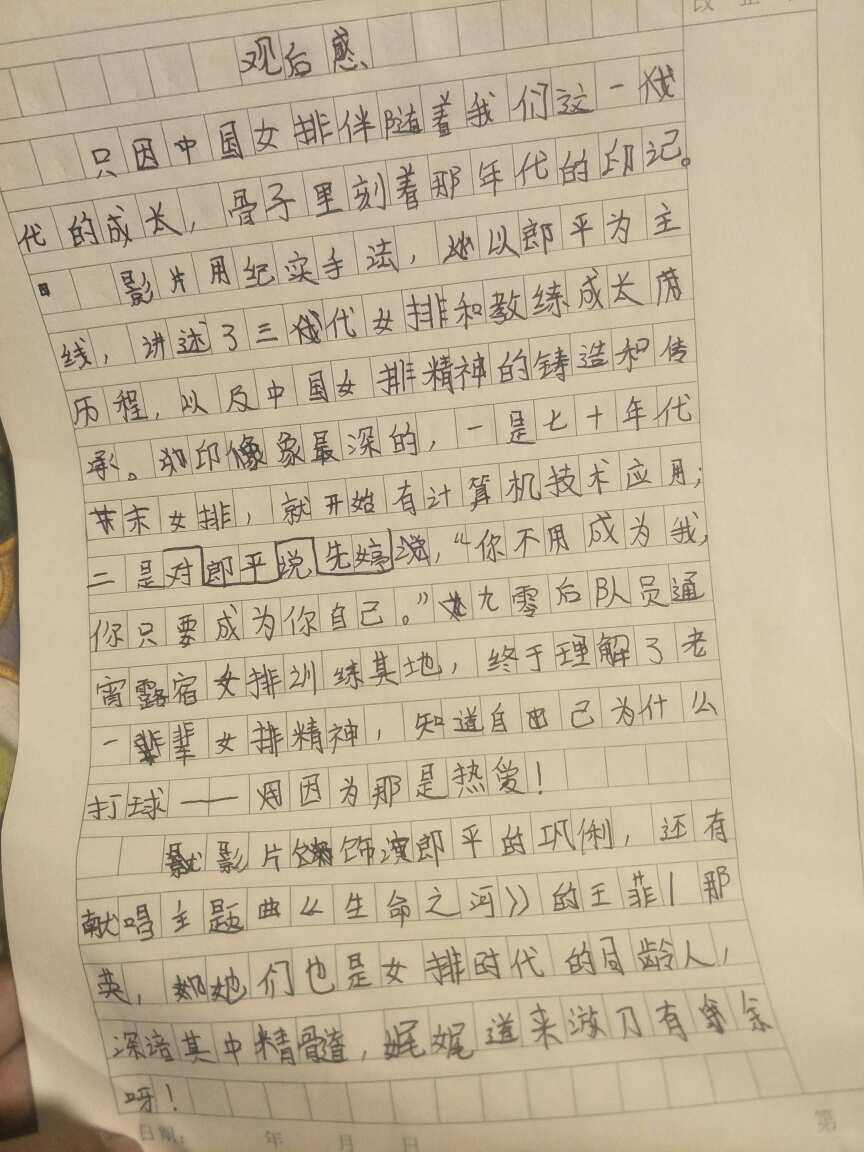 改正
观后感
只因中国女排伴随着我们这一
代的成长，骨子里刻着那年代的印记。
影片用纪实手法，以郎平为主
线，讲述了三代女排和教练成长
历程，以及中国女排精神的铸造和传
承。印象最深的，一是七十年代
末女排，就开始有计算机技术应用；
二是对郎平说先婷，“你不用成为我，
你只要成为你自己。”九零后队员通
宵露宿女排训练其地，终于理解了老
一辈女排精神，知道自己为什么
打球——因为那是热爱！
影片饰演郎平的巩俐，还有
献唱主题曲《生命之河》的王菲/那
英，她们也是女排时代的同龄人，
深谙其中精髓，娓娓道来游刃有余
呀！
日期： 年 月 日
第